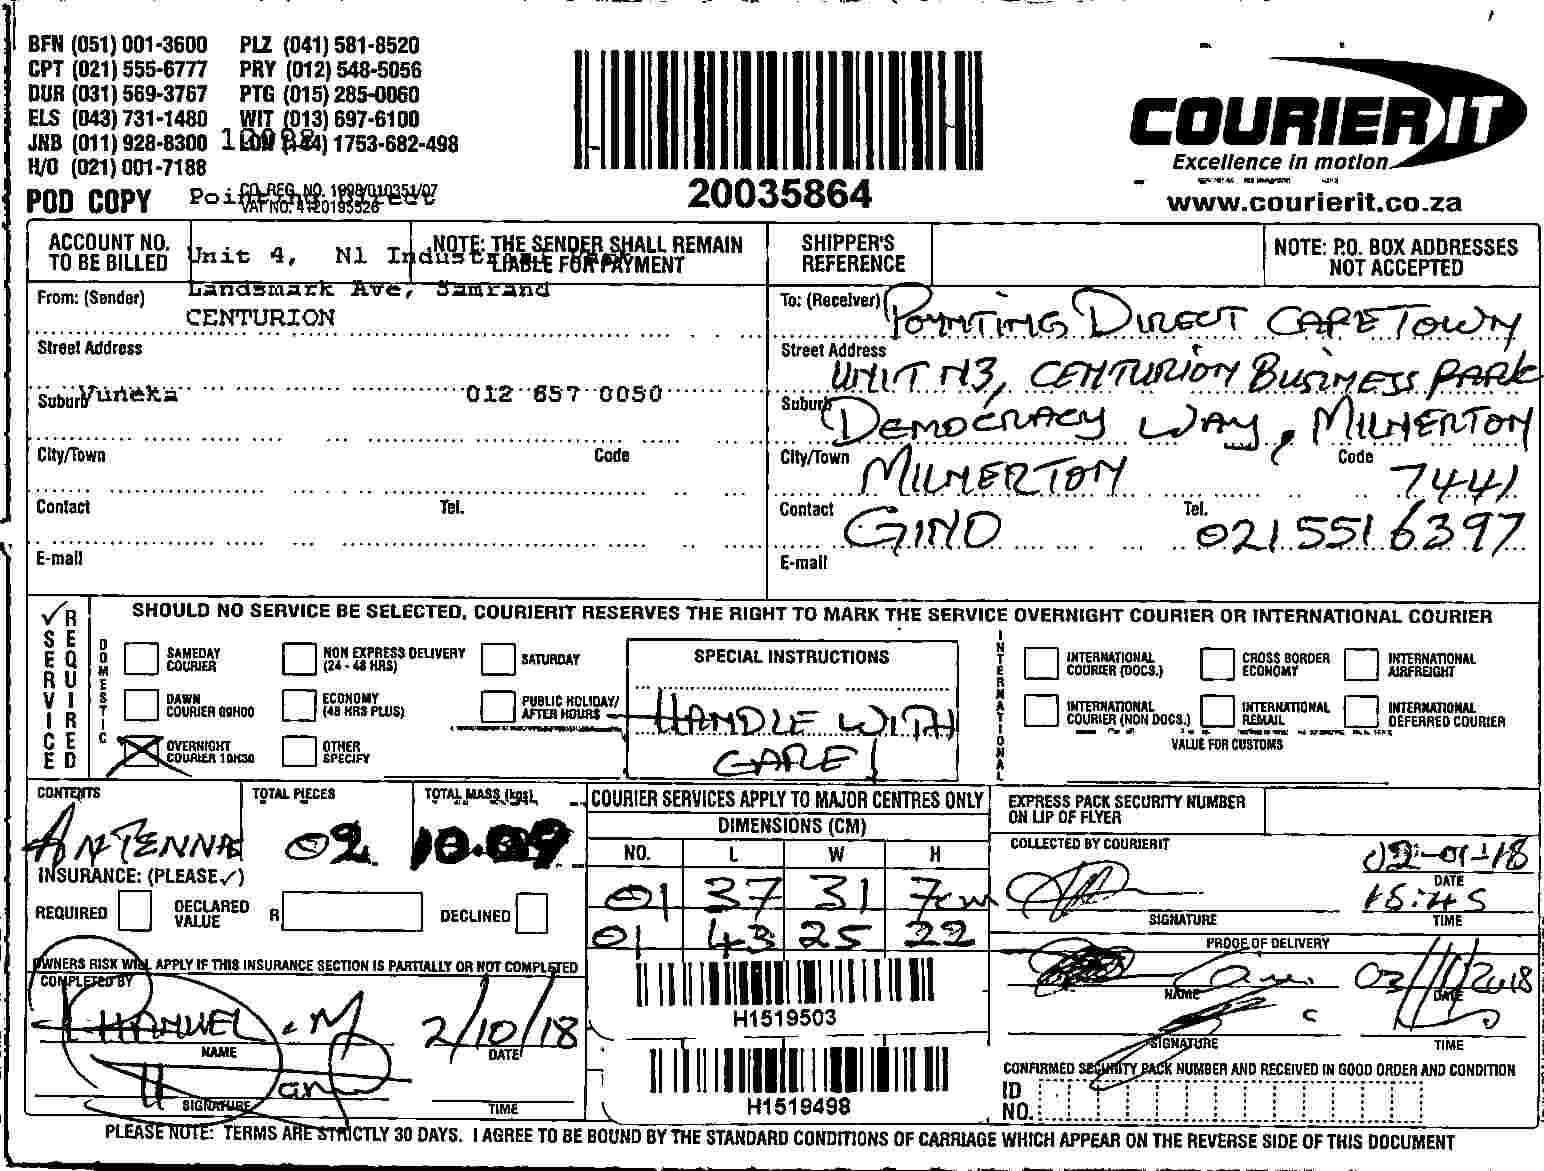 BFN (051) 001-3600 PLZ (041) 581-8520
CPT (021) 555-6777 PRY (012) 548-5056
DUR (031) 569-3767 PTG (015) 285-0060
ELS (043) 731-1480 WIT (013) 697-6100
JNB (011) 928-8300 LON (+44) 1753-682-498
H/O (021) 001-7188
CO. REG. NO. 1998/010351/07
POD COPY Pointing Direct
20035864
COURIER IT
Excellence in motion
www.courierit.co.za
ACCOUNT NO. TO BE BILLED
NOTE: THE SENDER SHALL REMAIN LIABLE FOR PAYMENT
Unit 4, N1 Industrial
Landsmark Ave, Samrand
CENTURION
From: (Sender)
Street Address
Suburb Vuneka 012 657 0050
City/Town Code
Contact Tel.
E-mail
SHIPPER'S REFERENCE
NOTE: P.O. BOX ADDRESSES NOT ACCEPTED
To: (Receiver) POYNTING DIRECT CAPE TOWN
Street Address UNIT N3, CENTURION BUSINESS PARK
Suburb DEMOCRACY WAY, MILNERTON
City/Town MILNERTON Code 7441
Contact GINO Tel. 021 551 6397
E-mail
SERVICE REQUIRED
SHOULD NO SERVICE BE SELECTED, COURIERIT RESERVES THE RIGHT TO MARK THE SERVICE OVERNIGHT COURIER OR INTERNATIONAL COURIER
DOMESTIC
SAMEDAY COURIER
NON EXPRESS DELIVERY (24 - 48 HRS)
SATURDAY
DAWN COURIER 09H00
ECONOMY (48 HRS PLUS)
PUBLIC HOLIDAY/ AFTER HOURS
OVERNIGHT COURIER 10H30
OTHER SPECIFY
SPECIAL INSTRUCTIONS
HANDLE WITH
CARE!
INTERNATIONAL
INTERNATIONAL COURIER (DOCS.)
CROSS BORDER ECONOMY
INTERNATIONAL AIRFREIGHT
INTERNATIONAL COURIER (NON DOCS.)
INTERNATIONAL REMAIL
INTERNATIONAL DEFERRED COURIER
VALUE FOR CUSTOMS
CONTENTS TOTAL PIECES TOTAL MASS (kgs)
ANTENNA 02 10.09
INSURANCE: (PLEASE ✓)
REQUIRED DECLARED VALUE R DECLINED
OWNERS RISK WILL APPLY IF THIS INSURANCE SECTION IS PARTIALLY OR NOT COMPLETED
COMPLETED BY
2/10/18
NAME DATE
SIGNATURE TIME
COURIER SERVICES APPLY TO MAJOR CENTRES ONLY
DIMENSIONS (CM)
NO. L W H
01 37 31 7cm
01 43 25 22
H1519503
H1519498
EXPRESS PACK SECURITY NUMBER ON LIP OF FLYER
COLLECTED BY COURIERIT
DATE
15:45
SIGNATURE TIME
PROOF OF DELIVERY
03/10/2018
NAME DATE
SIGNATURE TIME
CONFIRMED SECURITY PACK NUMBER AND RECEIVED IN GOOD ORDER AND CONDITION
ID NO.
PLEASE NOTE: TERMS ARE STRICTLY 30 DAYS. I AGREE TO BE BOUND BY THE STANDARD CONDITIONS OF CARRIAGE WHICH APPEAR ON THE REVERSE SIDE OF THIS DOCUMENT